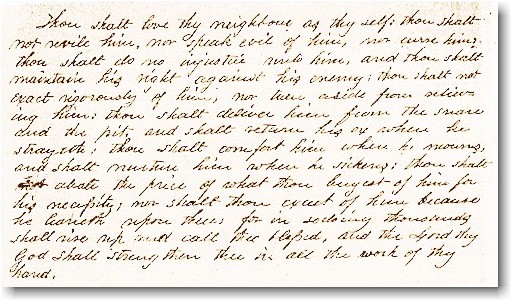 Thou shalt love thy neighbour as thy self: thou shalt
not revile him, nor speak evil of him, nor curse him:
thou shalt do no injustice unto him, and thou shalt
maintain his right against his enemy: thou shalt not
exact rigorously of him; nor turn aside from reliev-
ing him: thou shalt deliver him from the snare
and the pit; and shalt return his ox when he
strayeth: thou shalt comfort him when he mourns,
and shalt nurture him when he sickens: thou shalt
abate the price of what thou buyest of him for
his necessity; nor shalt thou exact of him because
he leaneth upon thee: for in so doing thousands
shall rise up and call thee blessed, and the Lord thy
God shall strengthen thee in all the work of thy
hand.